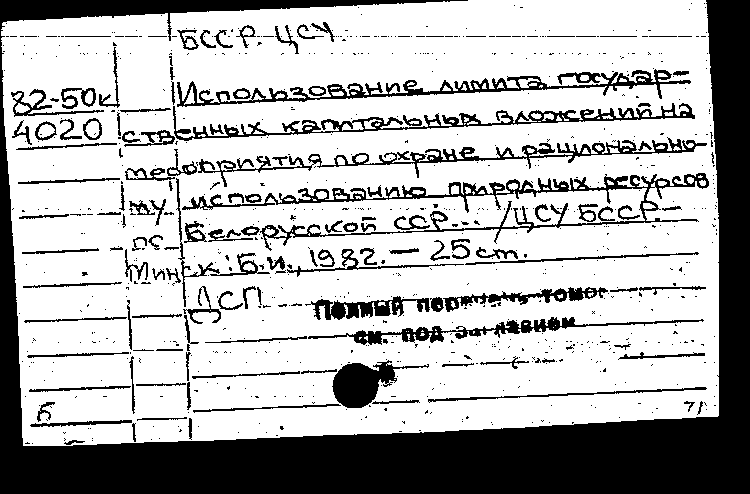 БССР. ЦСУ.
82-50к Использование лимита государ-
4020 ственных капитальных вложений на
мероприятия по охране и рационально-
му использованию природных ресурсов
Белорусской ССР... /ЦСУ БССР.-
Минск: Б.и., 1982. — 25 cm.
ДСП
Полный перечень томов
см. под заглавием
Б 71